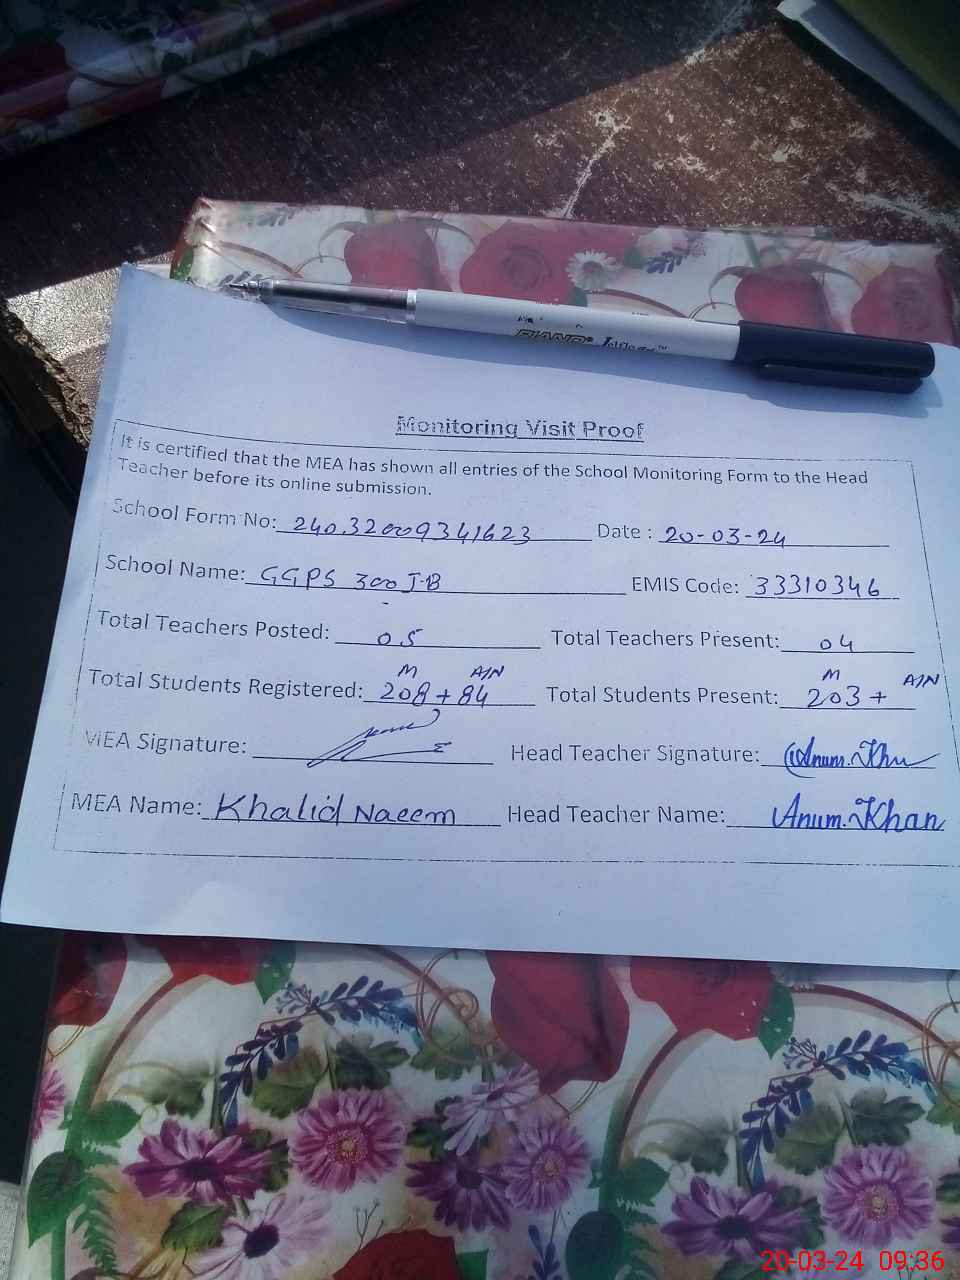 PIANO
Monitoring Visit Proof
It is certified that the MEA has shown all entries of the School Monitoring Form to the Head
Teacher before its online submission.
School Form No: 240.32009341623 Date : 20-03-24
School Name: GGPS 300 J-B EMIS Code: 33310346
Total Teachers Posted: 05 Total Teachers Present: 04
M A/N M A/N
Total Students Registered: 208 + 84 Total Students Present: 203 +
MEA Signature: Head Teacher Signature: Anum.Khan
MEA Name: Khalid Naeem Head Teacher Name: Anum.Khan
20-03-24 09:36